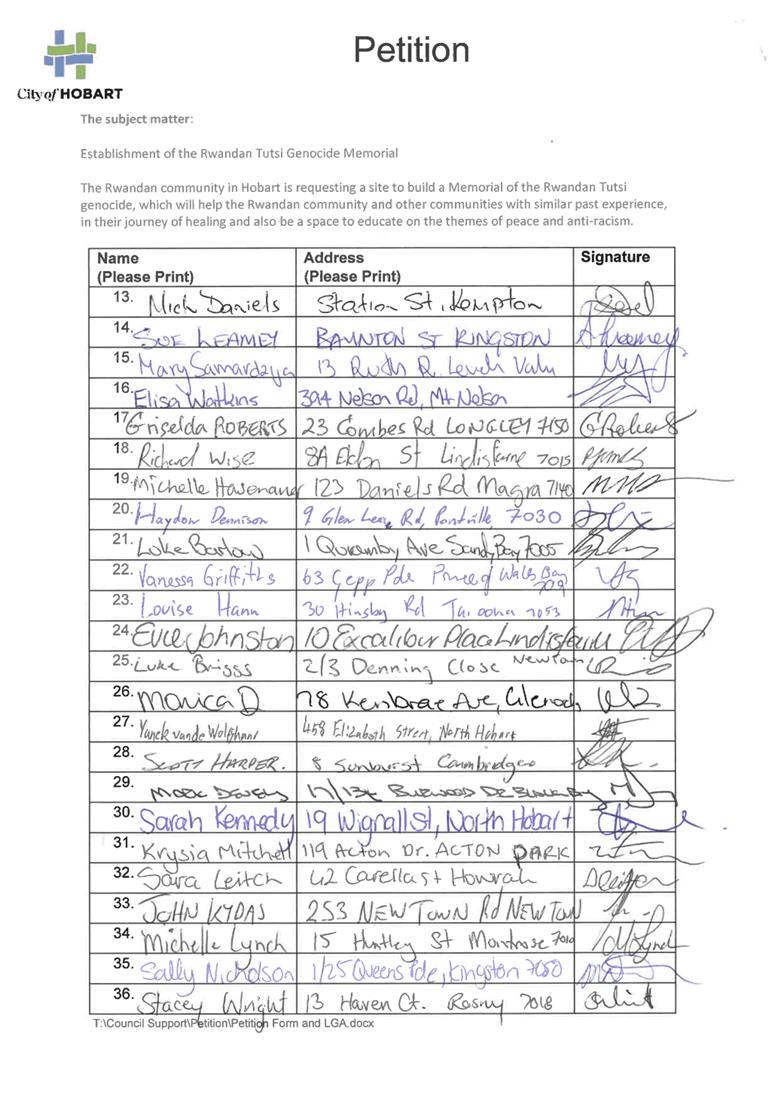 Petition
City of HOBART
The subject matter:
Establishment of the Rwandan Tutsi Genocide Memorial
The Rwandan community in Hobart is requesting a site to build a Memorial of the Rwandan Tutsi
genocide, which will help the Rwandan community and other communities with similar past experience,
in their journey of healing and also be a space to educate on the themes of peace and anti-racism.
Name Address Signature
(Please Print) (Please Print)
13. Mich Daniels Station St, Kempton
14. SUE LEAMEY BAYNTON ST KINGSTON
15. Mary 13 R
16. Elisa Watkins 39A Nelson Rd, Mt Nelson
17. Griselda ROBERTS 23 Combes Rd LONGLEY 7150 GRoberts
18. Richard Wise 8A St Lindisfarne 7015
19. Michelle 123 Daniels Rd Magra 7140
20. Haydon Dennison 9 Glen Rd, Pontville 7030
21. Luke Barlow 1 Quoremby Ave Sandy Bay 7005
22. Vanessa Griffiths 63 Gepp Pde Prince of Wales Bay
23. Louise Hann 30 Hinsby Rd Taroona 7053
24. Evie Johnston 10 Excalibur Place Lindisfarne
25. Luke Briggs 2/3 Denning Close Newtown
26. Monica D 78 Ave, Glenorch
27. Yanck vande 458 Elizabeth Street, North Hobart
28. SCOTT HARPER. 8 Sunburst Cambridge
29.
30. Sarah Kennedy 19 Wignall St, North Hobart
31. Krysia Mitchell 119 Acton Dr. ACTON PARK
32. Sara Leitch 42 Carella St Howrah
33. JOHN KYDAS 253 NEW TOWN Rd NEW TOWN
34. Michelle Lynch 15 Huntley St Montrose 7010
35. Sally Nicholson 1/25 Queens Pde, Kingston 7050
36. Stacey Wright 13 Haven Ct. Rosny 7018
T:\Council Support\Petition\Petition Form and LGA.docx